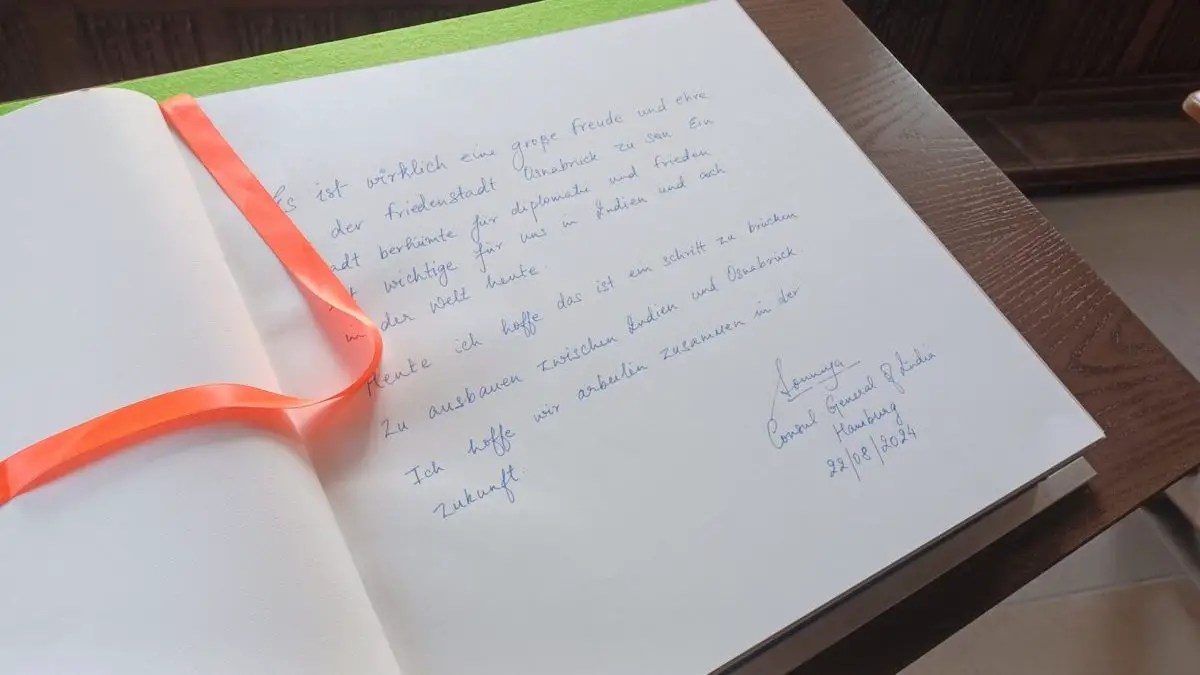 Es ist wirklich eine große Freude und ehre
der friedenstadt Osnabrück zu sein Ein
adt berhümte für diplomatie und frieden
wichtige für uns in Indien und auch
in der Welt heute.
Heute ich hoffe das ist ein schritt zu brücken
Zu ausbauen zwischen Indien und Osnabrück.
Ich hoffe wir arbeiten zusammen in der
Zukunft.
Soumya
Consul General of India
Hamburg
22/08/2024